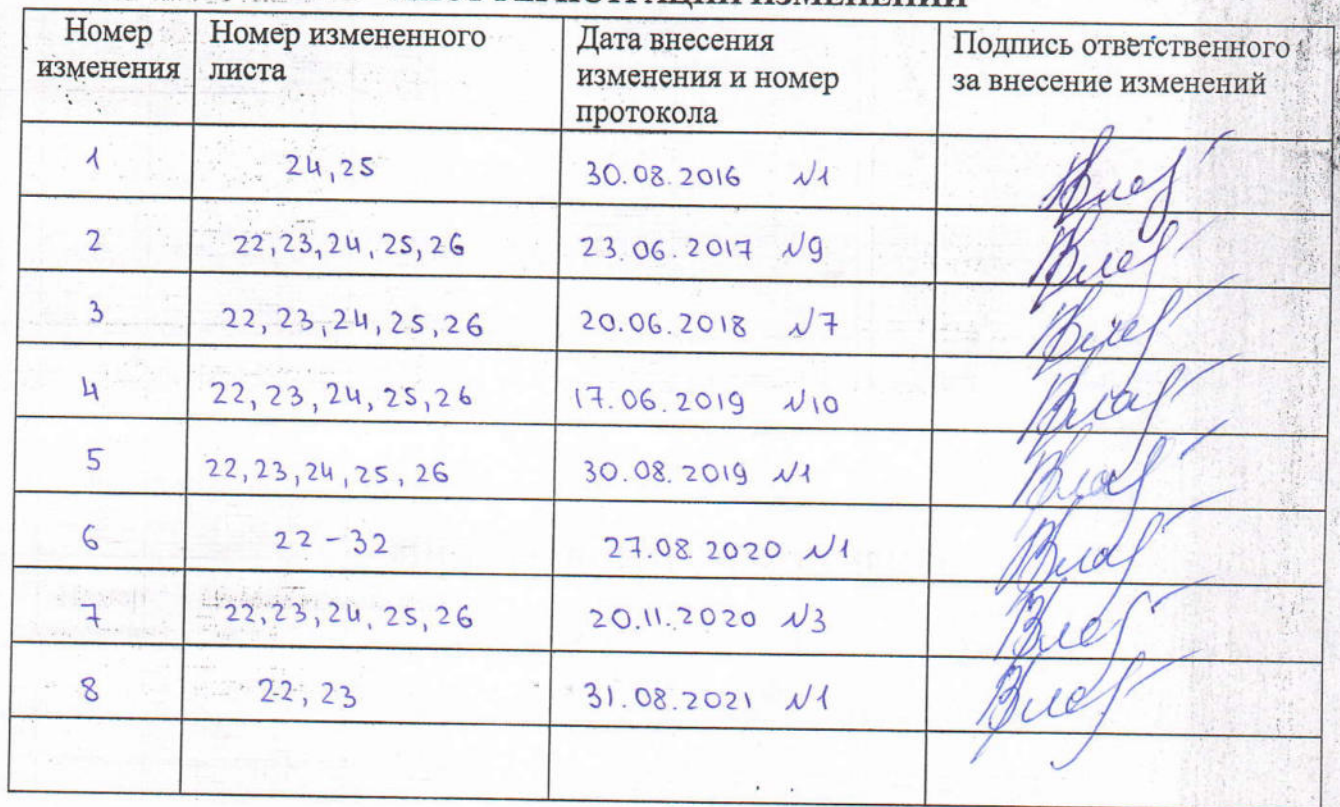 РЕГИСТРАЦИИ ИЗМЕНЕНИЙ
Номер изменения Номер измененного листа Дата внесения изменения и номер протокола Подпись ответственного за внесение изменений
1 24,25 30.08.2016 №1
2 22,23,24,25,26 23.06.2017 №9
3 22,23,24,25,26 20.06.2018 №7
4 22,23,24,25,26 17.06.2019 №10
5 22,23,24,25,26 30.08.2019 №1
6 22-32 27.08 2020 №1
7 22,23,24,25,26 20.11.2020 №3
8 22,23 31.08.2021 №1